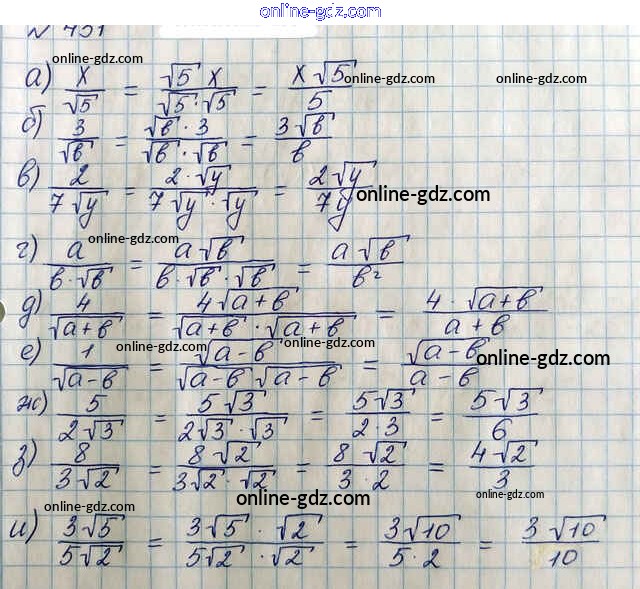 online-gdz.com
№ 431
а) x/√5 = √5 x/√5·√5 = x√5/5
online-gdz.com online-gdz.com
б) 3/√b = √b · 3/√b · √b = 3√b/b
online-gdz.com online-gdz.com
в) 2/7√y = 2·√y/7√y·√y = 2√y/7y
online-gdz.com
online-gdz.com
г) a/b·√b = a√b/b·√b·√b = a√b/b²
д) 4/√a+b = 4√a+b/√a+b · √a+b = 4 · √a+b/a+b
online-gdz.com online-gdz.com
е) 1/√a-b = √a-b/√a-b √a-b = √a-b/a-b
online-gdz.com
ж) 5/2√3 = 5√3/2√3 · √3 = 5√3/2·3 = 5√3/6
з) 8/3√2 = 8√2/3√2 · √2 = 8√2/3·2 = 4√2/3
online-gdz.com online-gdz.com online-gdz.com
и) 3√5/5√2 = 3√5 · √2/5√2 · √2 = 3√10/5·2 = 3√10/10